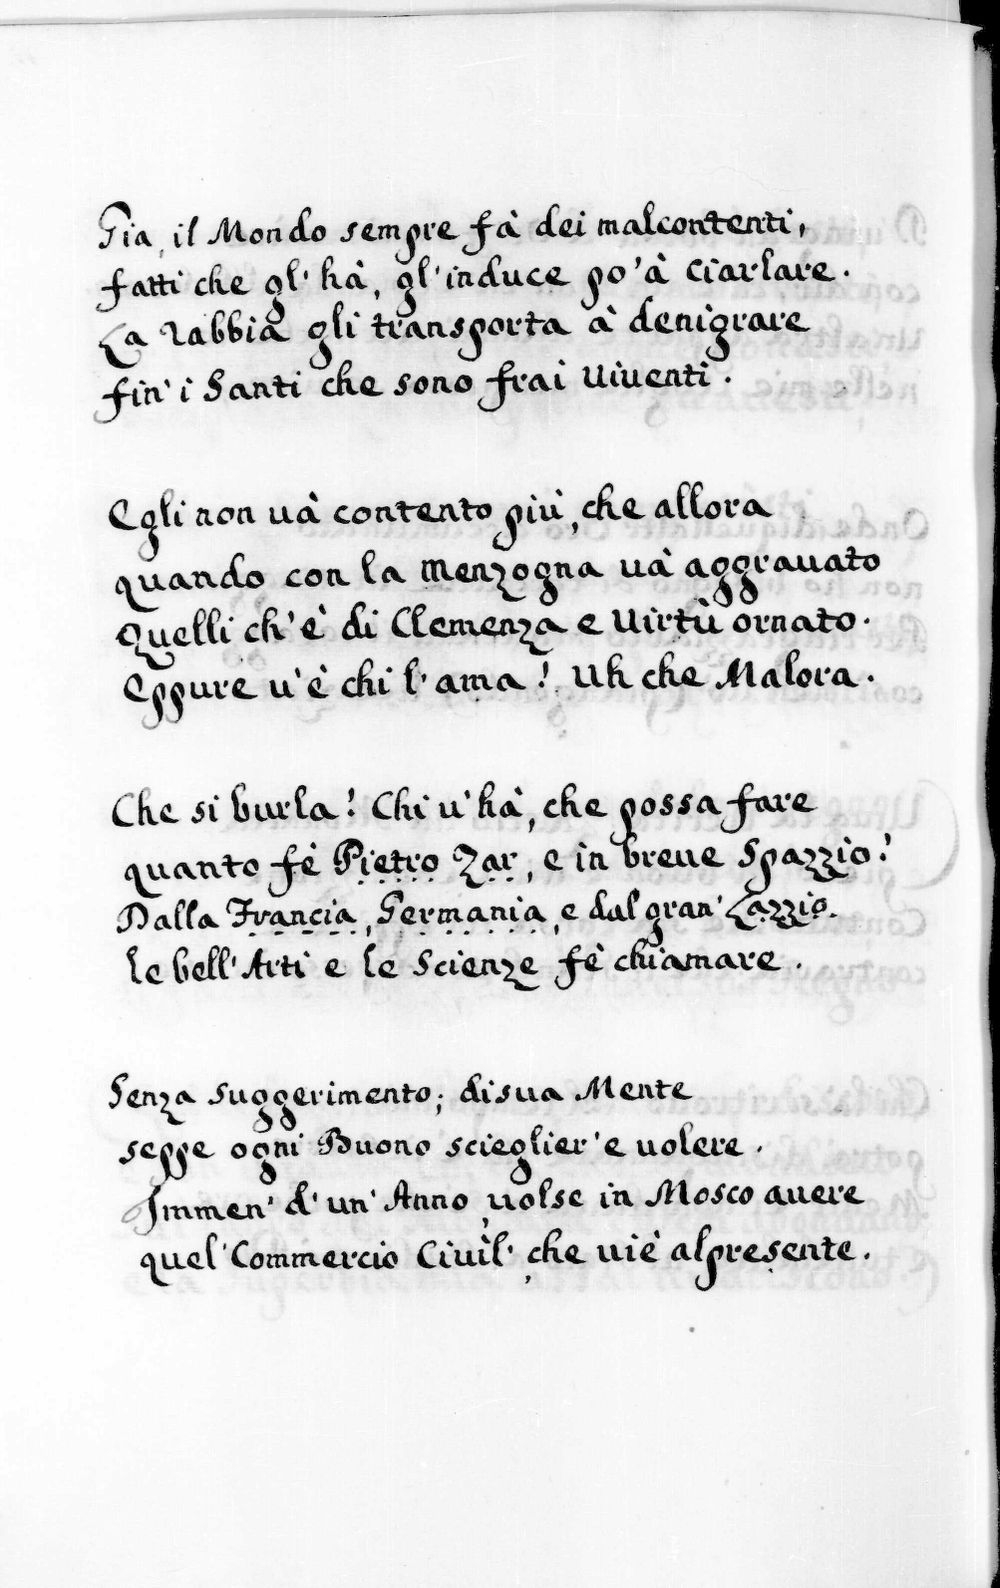 Gia, il Mondo sempre fà dei malcontenti,
fatti che gl' hà, gl'induce po'à Ciarlare.
La rabbia gli transporta à denigrare
fin' i Santi che sono frai viventi.
Egli non và contento più, che allora
quando con la Menzogna và aggravato
Quelli ch'è di Clemenza e Virtù ornato.
Eppure v'è chi l'ama! Uh che Malora.
Che si burla! Chi v'hà, che possa fare
quanto fè Pietro Zar, e in breve Spazzio!
Dalla Francia, Germania, e dal gran' Lazzio.
le bell'Arti e le Scienze fè chiamare.
Senza suggerimento; di sua Mente
seppe ogni Buono scieglier'e volere.
Immen' d'un' Anno, volse in Mosco avere
quel'Commercio Civil', che viè al presente.